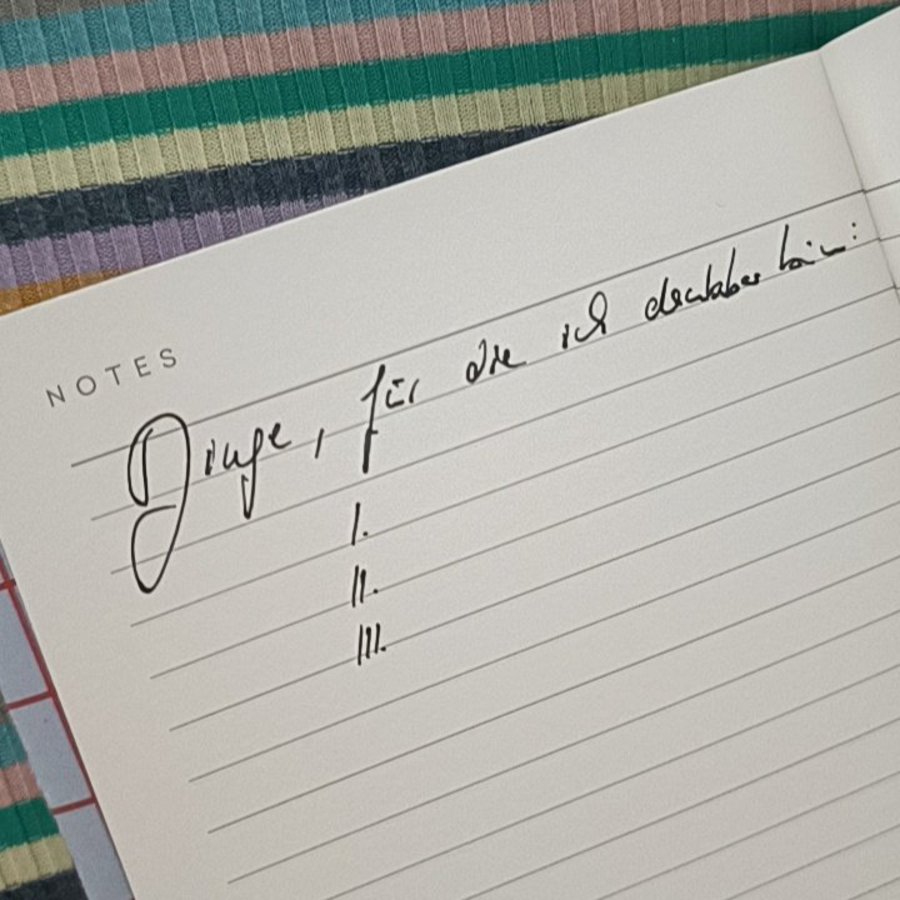 NOTES
Dinge, für die ich dankbar bin:
I.
II.
III.